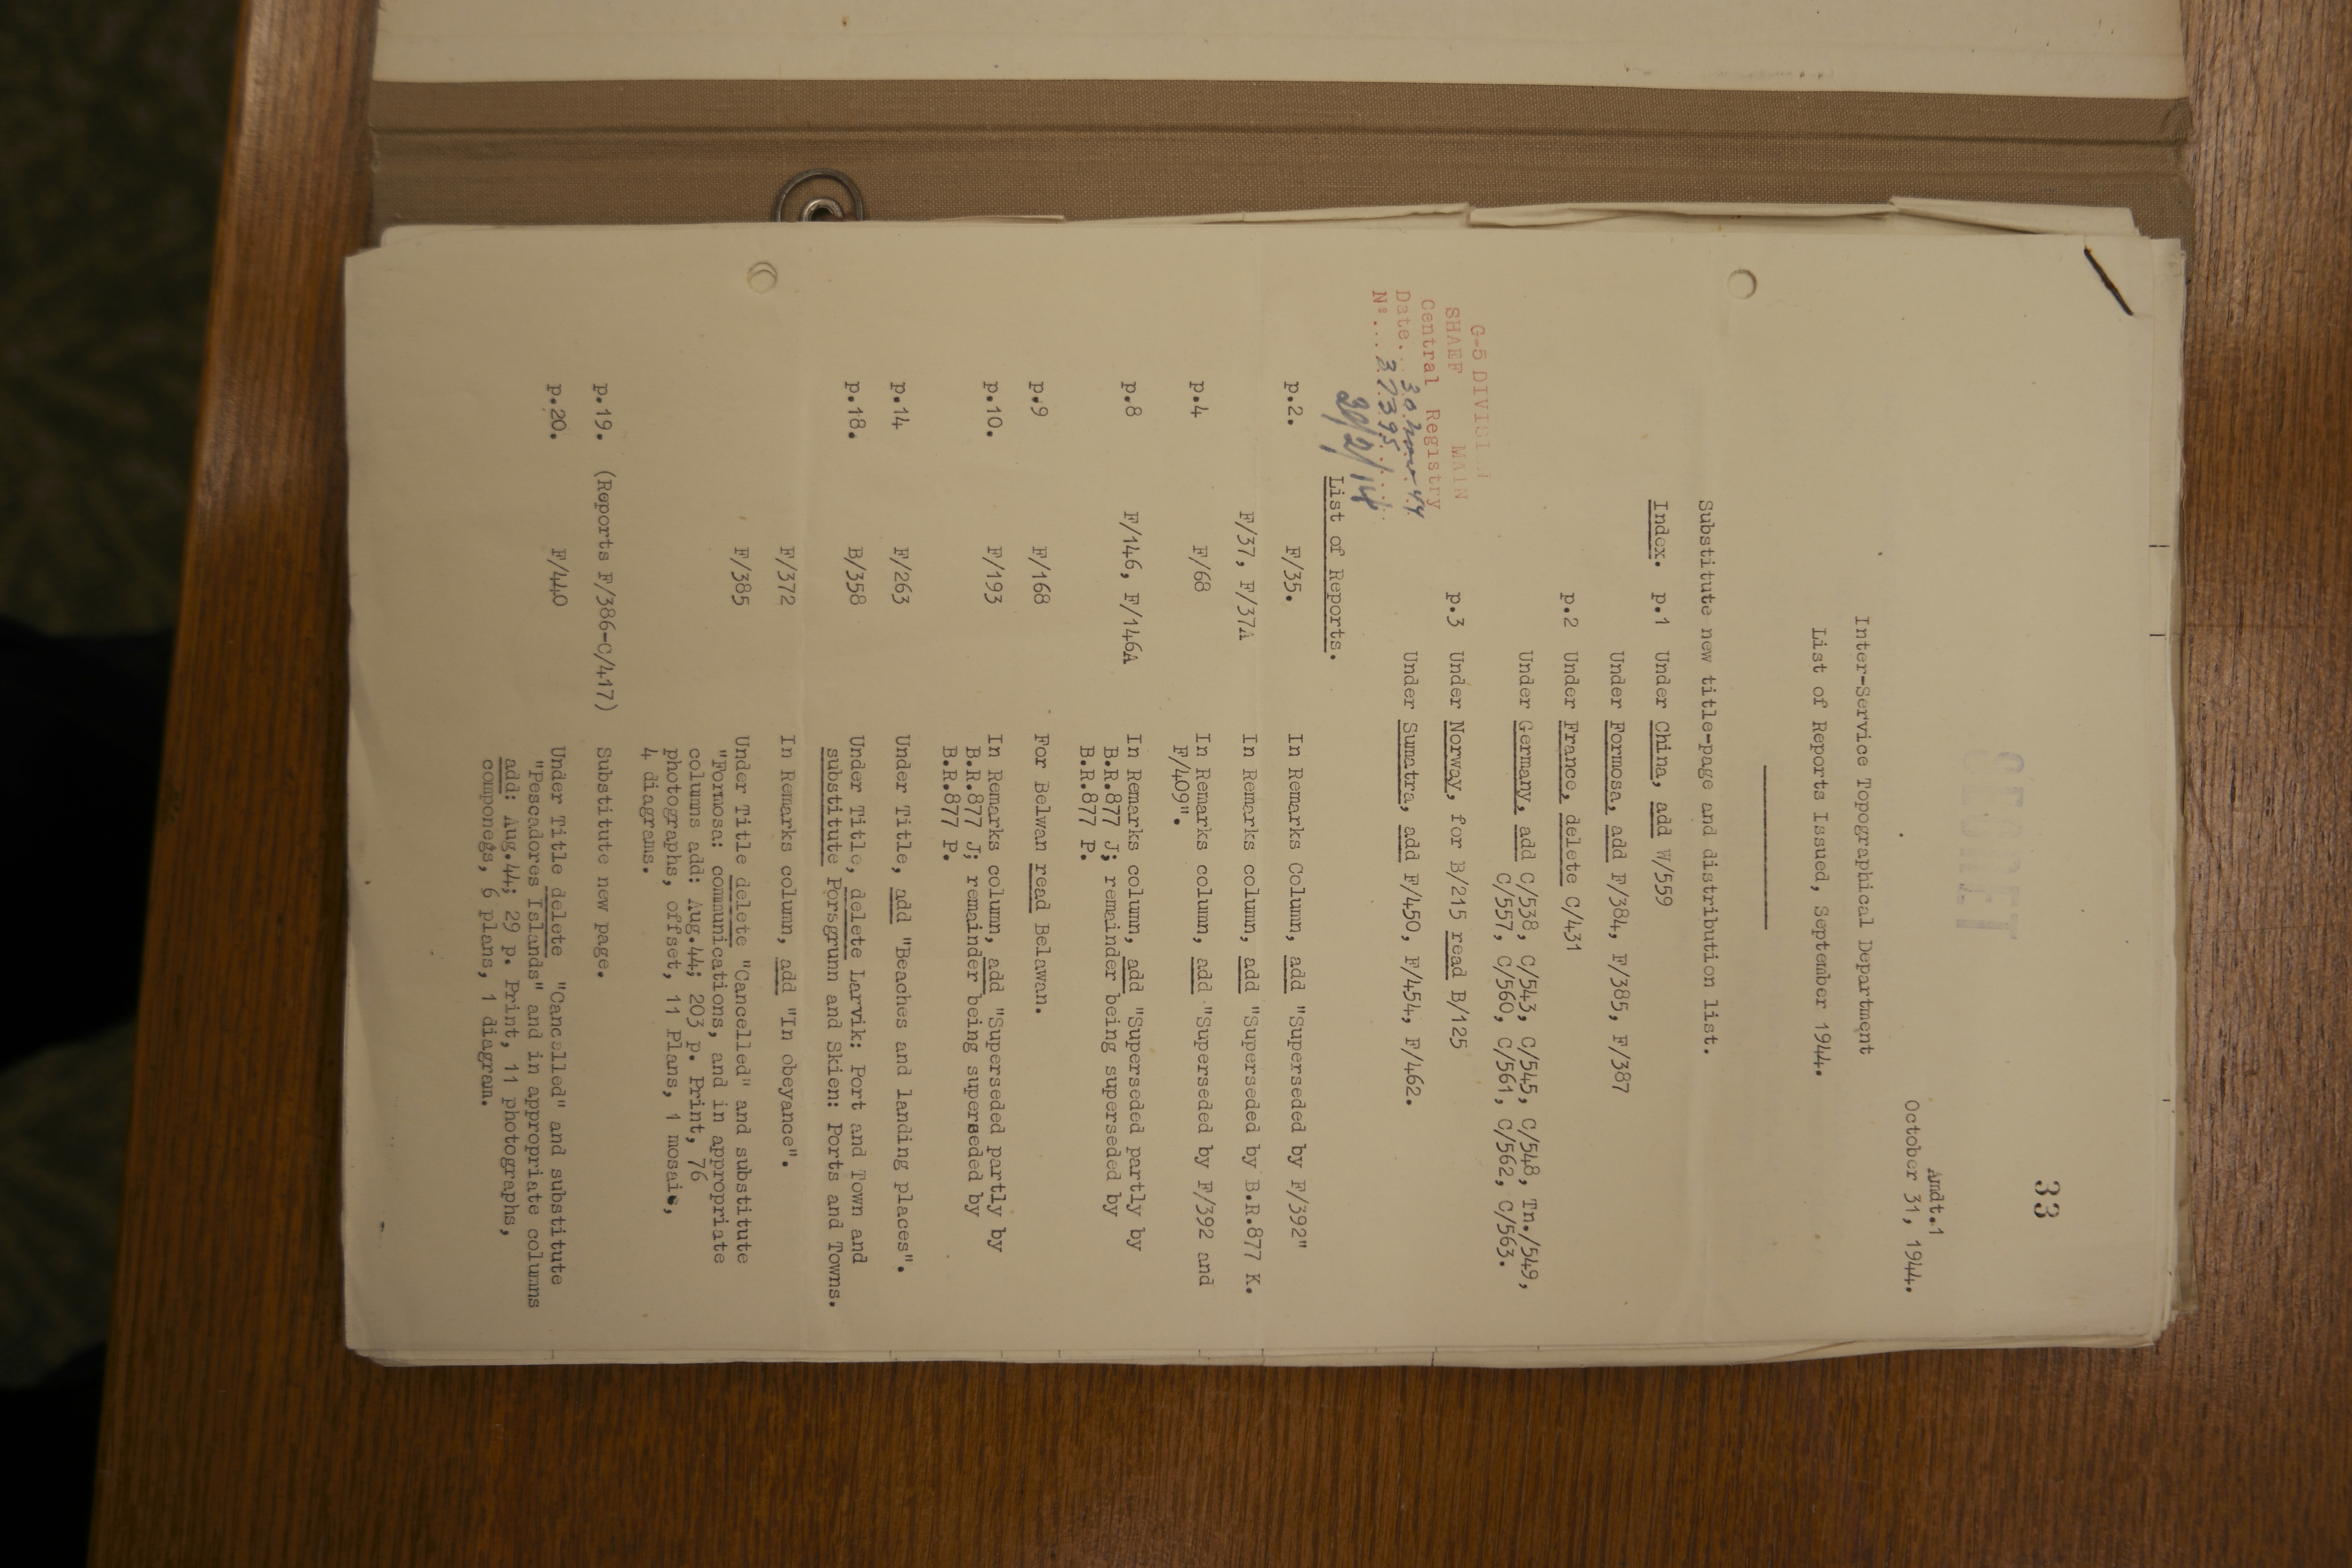 33
SECRET
Amdt.1
October 31, 1944.
Inter-Service Topographical Department
List of Reports Issued, September 1944.
Substitute new title-page and distribution list.
Index. p.1 Under China, add W/559
Under Formosa, add F/384, F/385, F/387
p.2 Under France, delete C/431
Under Germany, add C/538, C/543, C/545, C/548, Tn./549,
C/557, C/560, C/561, C/562, C/563.
p.3 Under Norway, for B/215 read B/125
Under Sumatra, add F/450, F/454, F/462.
G-5 DIVISION
SHAEF MAIN
Central Registry
Date... 30 Nov 44
Nº... 37395
List of Reports.
p.2. F/35. In Remarks Column, add "Superseded by F/392"
F/37, F/37A In Remarks column, add "Superseded by B.R.877 K.
p.4 F/68 In Remarks column, add "Superseded by F/392 and
F/409".
p.8 F/146, F/146A In Remarks column, add "Superseded partly by
B.R.877 J; remainder being superseded by
B.R.877 P.
p.9 F/168 For Belwan read Belawan.
p.10. F/193 In Remarks column, add "Superseded partly by
B.R.877 J; remainder being superseded by
B.R.877 P.
p.14 F/263 Under Title, add "Beaches and landing places".
p.18. B/358 Under Title, delete Larvik: Port and Town and
substitute Porsgrunn and Skien: Ports and Towns.
F/372 In Remarks column, add "In obeyance".
F/385 Under Title delete "Cancelled" and substitute
"Formosa: communications, and in appropriate
columns add: Aug.44; 203 p. Print, 76
photographs, offset, 11 Plans, 1 mosaic,
4 diagrams.
p.19. (Reports F/386-C/417) Substitute new page.
p.20. F/440 Under Title delete "Cancelled" and substitute
"Pescadores Islands" and in appropriate columns
add: Aug.44; 29 p. Print, 11 photographs,
componegs, 6 plans, 1 diagram.